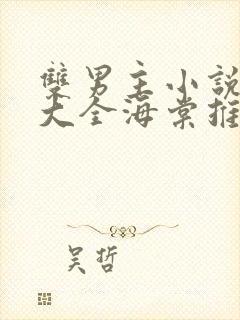 雙男主小說
大全海棠推
吴哲